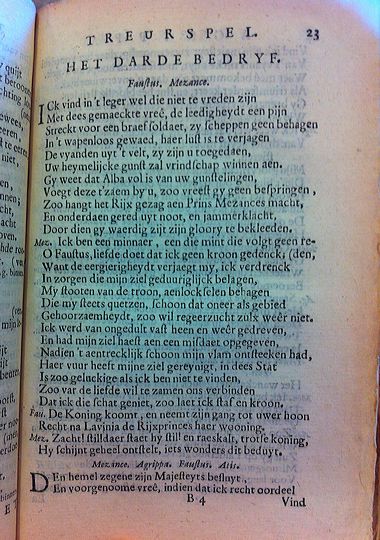 TREURSPEL. 23
HET DARDE BEDRYF.
Faustus. Mezance.
ICk vind in 't leger wel die niet te vreden zijn
Met dees gemaeckte vreê, de leedigheydt een pijn
Streckt voor een braef soldaet, zy scheppen geen behagen
In 't wapenloos gewaed, haer lust is te verjagen
De vyanden uyt 't velt, zy zijn u toegedaen,
Uw heymelijcke gunst zal vrindschap winnen aen.
Gy weet dat Alba vol is van uw gunstelingen,
Voegt deze t'zaem by u, zoo vreest gy geen bespringen,
Zoo hangt het Rijx gezag aen Prins Mezances macht,
En onderdaen gered uyt noot, en jammerklacht,
Door dien gy waerdig zijt zijn gloory te bekleeden.
Mez. Ick ben een minnaer, een die mint die volgt geen re-
O Faustus, liefde doet dat ick geen kroon gedenck; (den,
Want de eergierigheydt verjaegt my, ick verdrenck
In zorgen die mijn ziel geduuriglijck belagen,
My stooten van de troon, aenlockselen behagen
Die my steets quetzen, schoon dat oneer als gebied
Gehoorzaemheydt, zoo wil regeerzucht zulx weêr niet.
Ick werd van ongedult vast heen en weêr gedreven,
En had mijn ziel haest aen een misdaet opgegeven,
Nadien 't aentrecklijk schoon mijn vlam ontsteeken had,
Haer vuur heeft mijne ziel gereynigt, in dees Stat
Is zoo geluckige als ick ben niet te vinden,
Zoo var de liefde wil te zamen ons verbinden
Dat ick die schat geniet, zoo laet ick staf en kroon.
Fau. De Koning komt, en neemt zijn gang tot uwer hoon
Recht na Lavinia de Rijxprinces haer wooning.
Mez. Zacht! stil daer staet hy stil! en raeskalt, trotse koning,
Hy schijnt geheel ontstelt, iets wonders dit beduyt.
Mezance. Agrippa. Faustus. Atis.
DEn hemel zegene zijn Majesteyts besluyt,
En voorgenoome vreê, indien dat ick recht oordeel
B 4 Vind